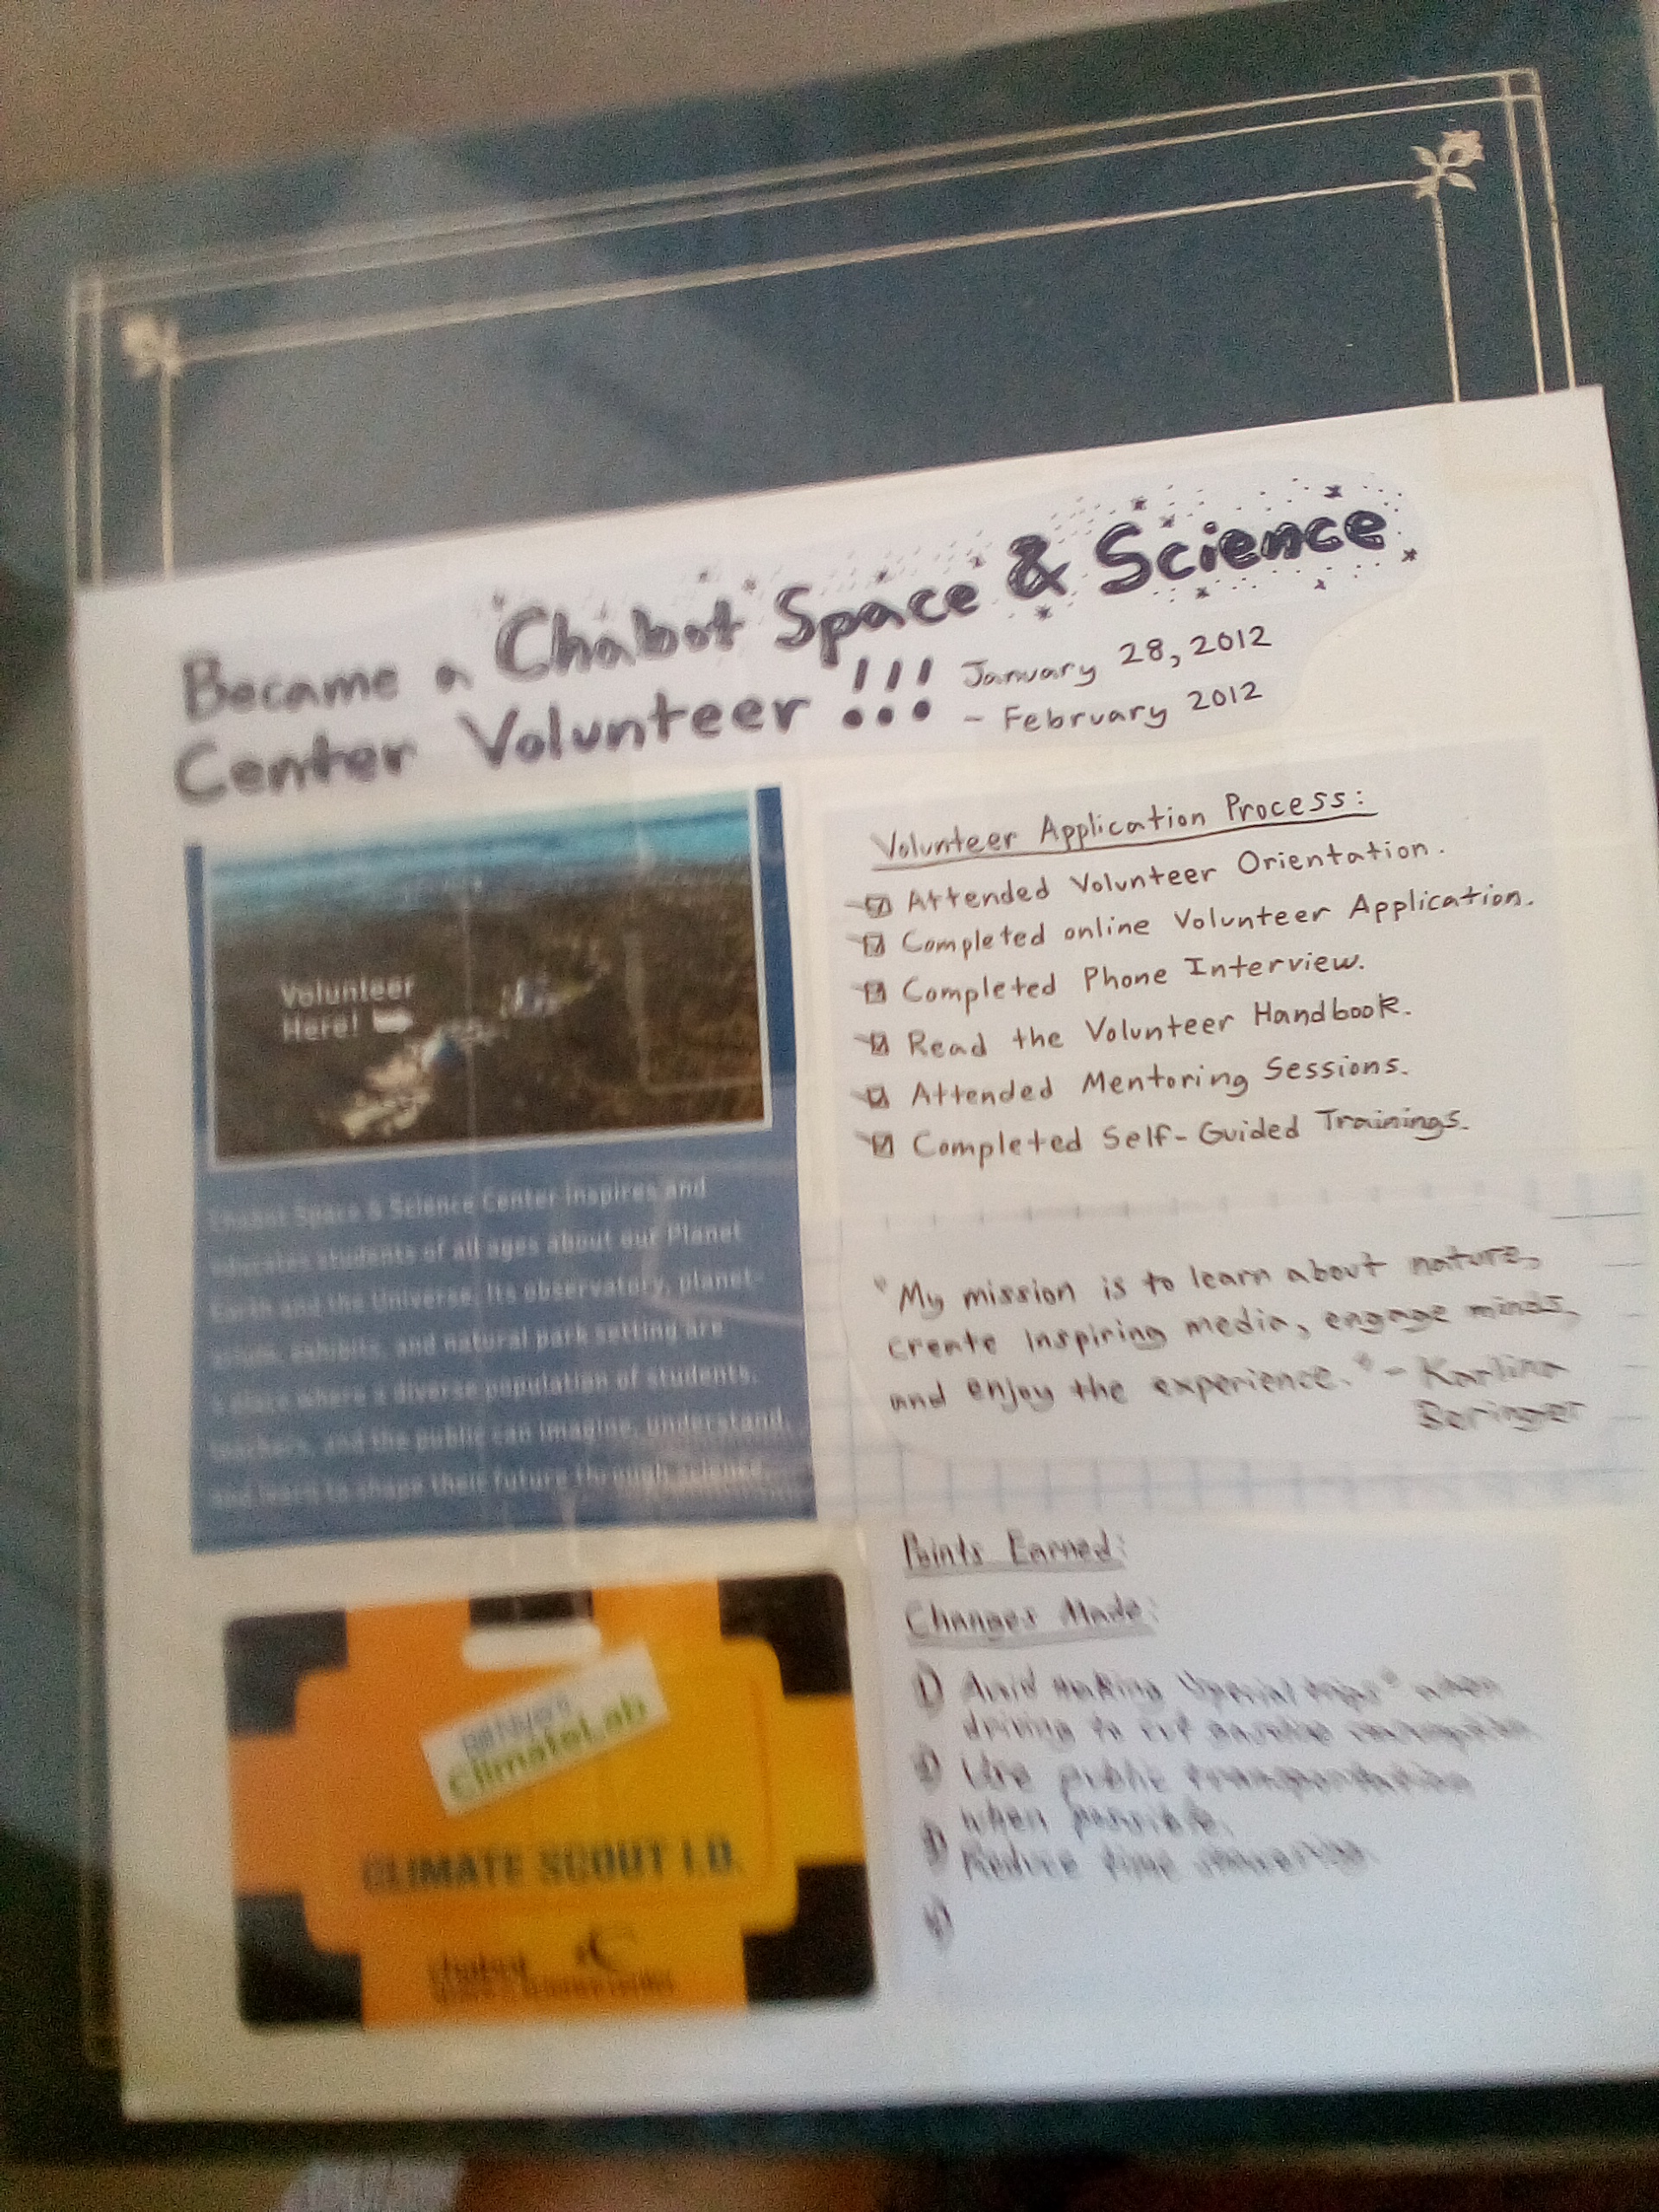 Became a Chabot Space & Science
Center Volunteer !!! January 28, 2012
- February 2012
Volunteer
Here!
Chabot Space & Science Center inspires and
educates students of all ages about our Planet
Earth and the Universe. Its observatory, planet-
arium, exhibits, and natural park setting are
a place where a diverse population of students,
teachers, and the public can imagine, understand,
and learn to shape their future through science.
Volunteer Application Process:
Attended Volunteer Orientation.
Completed online Volunteer Application.
Completed Phone Interview.
Read the Volunteer Handbook.
Attended Mentoring Sessions.
Completed Self-Guided Trainings.
"My mission is to learn about nature,
create inspiring media, engage minds,
and enjoy the experience." - Karlina
Beringer
BILL NYE'S
ClimateLab
CLIMATE SCOUT I.D.
chabot
Points Earned:
Changes Made:
1) Avoid making "special trips" when
driving to cut gasoline consumption.
2) Use public transportation
when possible.
3) Reduce time
4)